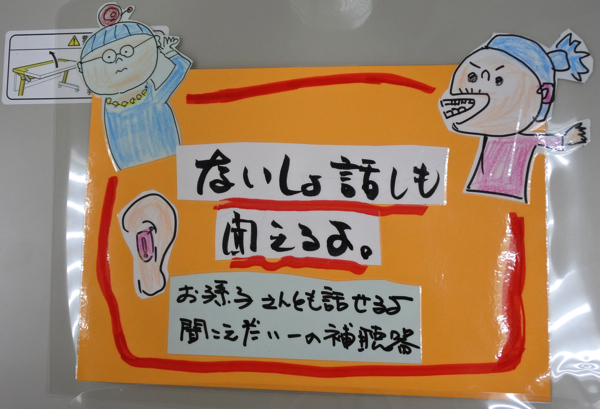 ないしょ話しも
聞えるよ。
お孫さんとも話せるよ
聞こえだい一の補聴器